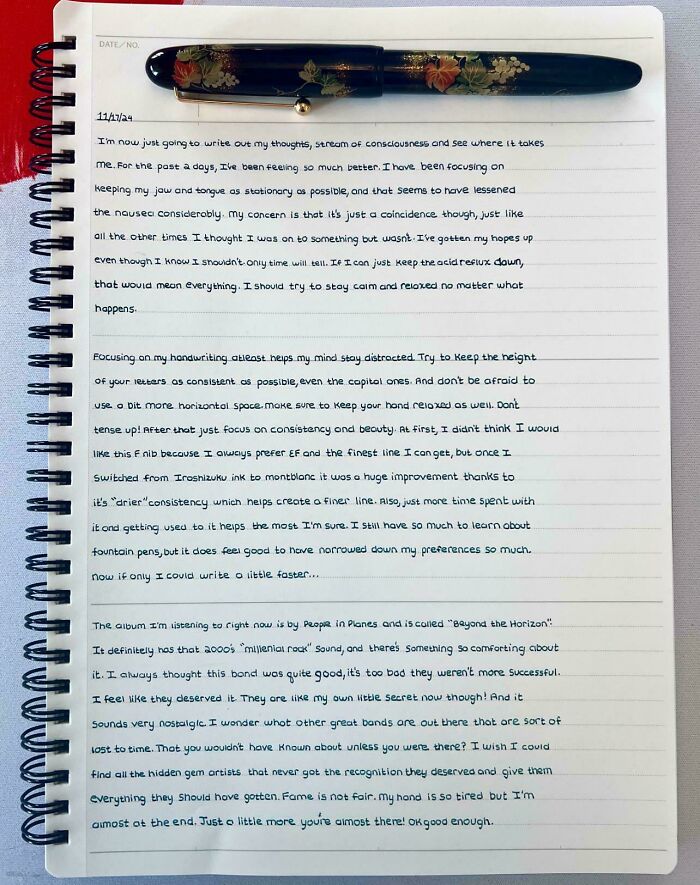 DATE/NO.
11/17/24
I'm now just going to write out my thoughts, stream of consciousness and see where it takes
me. For the past 2 days, I've been feeling so much better. I have been focusing on
keeping my jaw and tongue as stationary as possible, and that seems to have lessened
the nausea considerably. My concern is that it's just a coincidence though, just like
all the other times I thought I was on to something but wasn't. I've gotten my hopes up
even though I know I shouldn't. Only time will tell. If I can just keep the acid reflux down,
that would mean everything. I should try to stay calm and relaxed no matter what
happens.
Focusing on my handwriting atleast helps my mind stay distracted. Try to keep the height
of your letters as consistent as possible, even the capital ones. And don't be afraid to
use a bit more horizontal space. make sure to keep your hand relaxed as well. Don't
tense up! After that just focus on consistency and beauty. At first, I didn't think I would
like this F nib because I always prefer EF and the finest line I can get, but once I
switched from Iroshizuku ink to montblanc it was a huge improvement thanks to
it's "drier" consistency which helps create a finer line. Also, just more time spent with
it and getting used to it helps the most I'm sure. I still have so much to learn about
fountain pens, but it does feel good to have narrowed down my preferences so much.
now if only I could write a little faster...
The album I'm listening to right now is by People in Planes and is called "Beyond the Horizon".
It definitely has that 2000's "millenial rock" sound, and there's something so comforting about
it. I always thought this band was quite good, it's too bad they weren't more successful.
I feel like they deserved it. They are like my own little secret now though! And it
sounds very nostalgic. I wonder what other great bands are out there that are sort of
lost to time. That you wouldn't have known about unless you were there? I wish I could
find all the hidden gem artists that never got the recognition they deserved and give them
everything they should have gotten. Fame is not fair. My hand is so tired but I'm
almost at the end. Just a little more you're almost there! OK good enough.